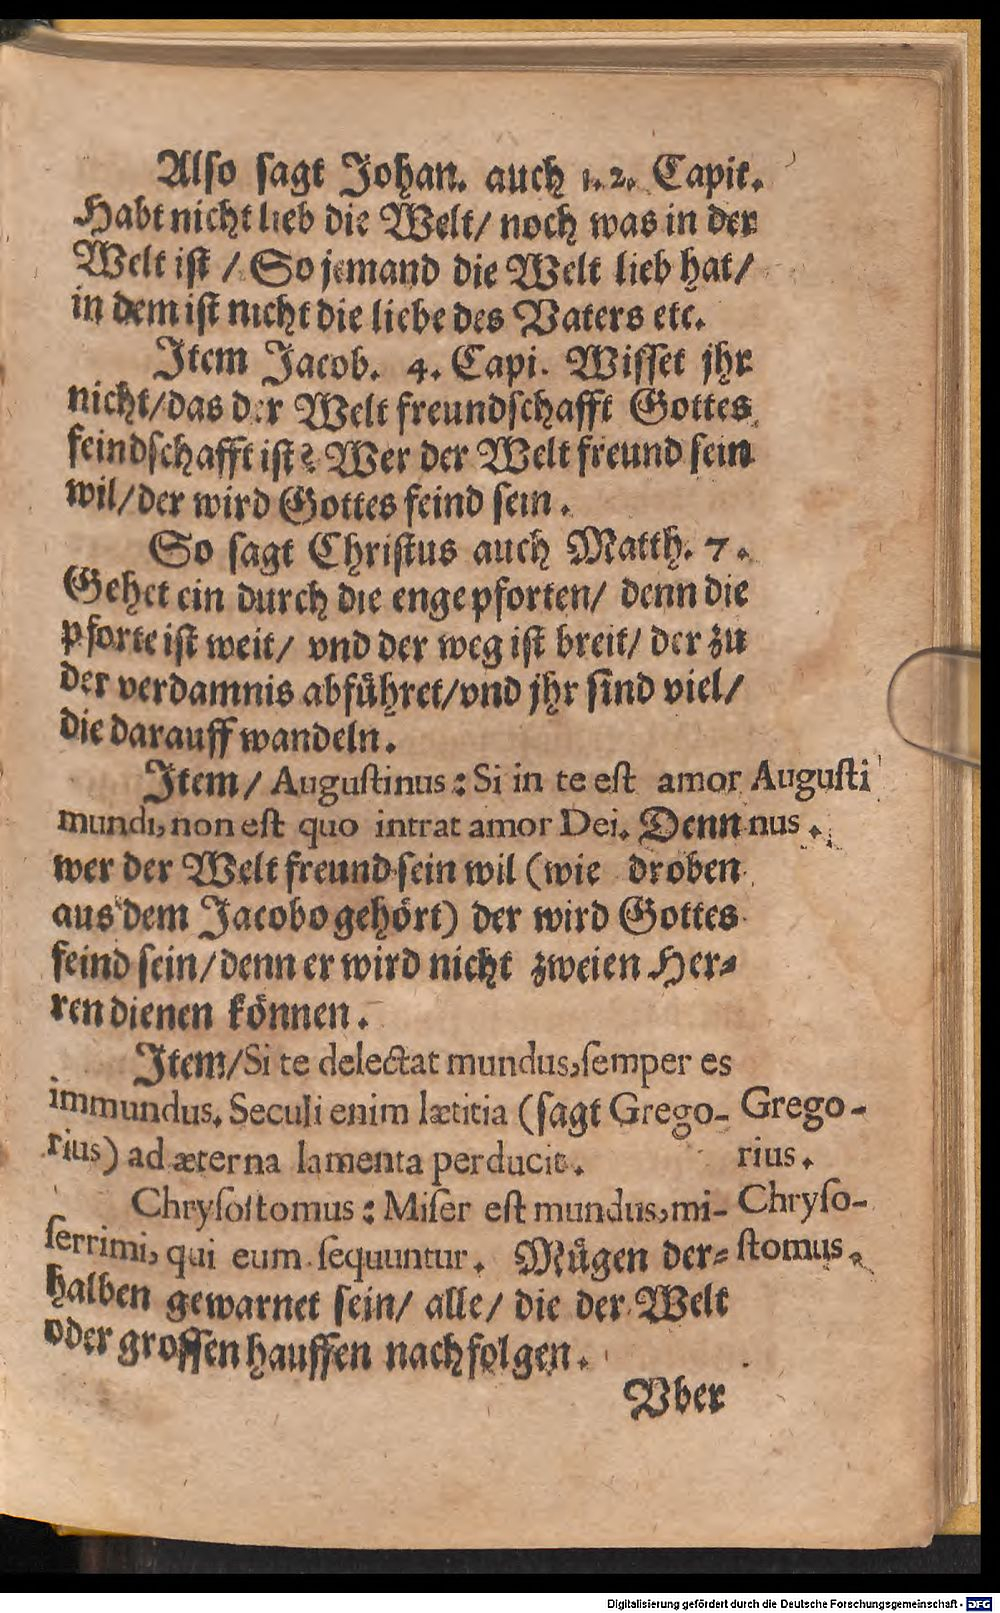 Also sagt Johan. auch 1. 2. Capit.
Habt nicht lieb die Welt/ noch was in der
Welt ist / So jemand die Welt lieb hat/
in dem ist nicht die liebe des Vaters etc.
Item Jacob. 4. Capi. Wisset jhr
nicht/das der Welt freundschafft Gottes
feindschafft ist? Wer der Welt freund sein
wil/der wird Gottes feind sein.
So sagt Christus auch Matth. 7.
Gehet ein durch die enge pforten/ denn die
pforte ist weit/ vnd der weg ist breit/ der zu
der verdamnis abführet/vnd jhr sind viel/
die darauff wandeln.
Item/ Augustinus: Si in te est amor
mundi, non est quo intrat amor Dei. Denn
Augusti
nus.
wer der Welt freund sein wil (wie droben
aus dem Jacobo gehört) der wird Gottes
feind sein/denn er wird nicht zweien Her-
ren dienen können.
Item/Si te delectat mundus,semper es
immundus. Seculi enim lætitia (sagt Grego-
rius) ad æterna lamenta perducit.
Grego-
rius.
Chrysostomus: Miser est mundus,mi-
serrimi, qui eum sequuntur. Mügen der-
Chryso-
stomus.
halben gewarnet sein/ alle/ die der Welt
oder grossen hauffen nachfolgen.
Vber
Digitalisierung gefördert durch die Deutsche Forschungsgemeinschaft - DFG